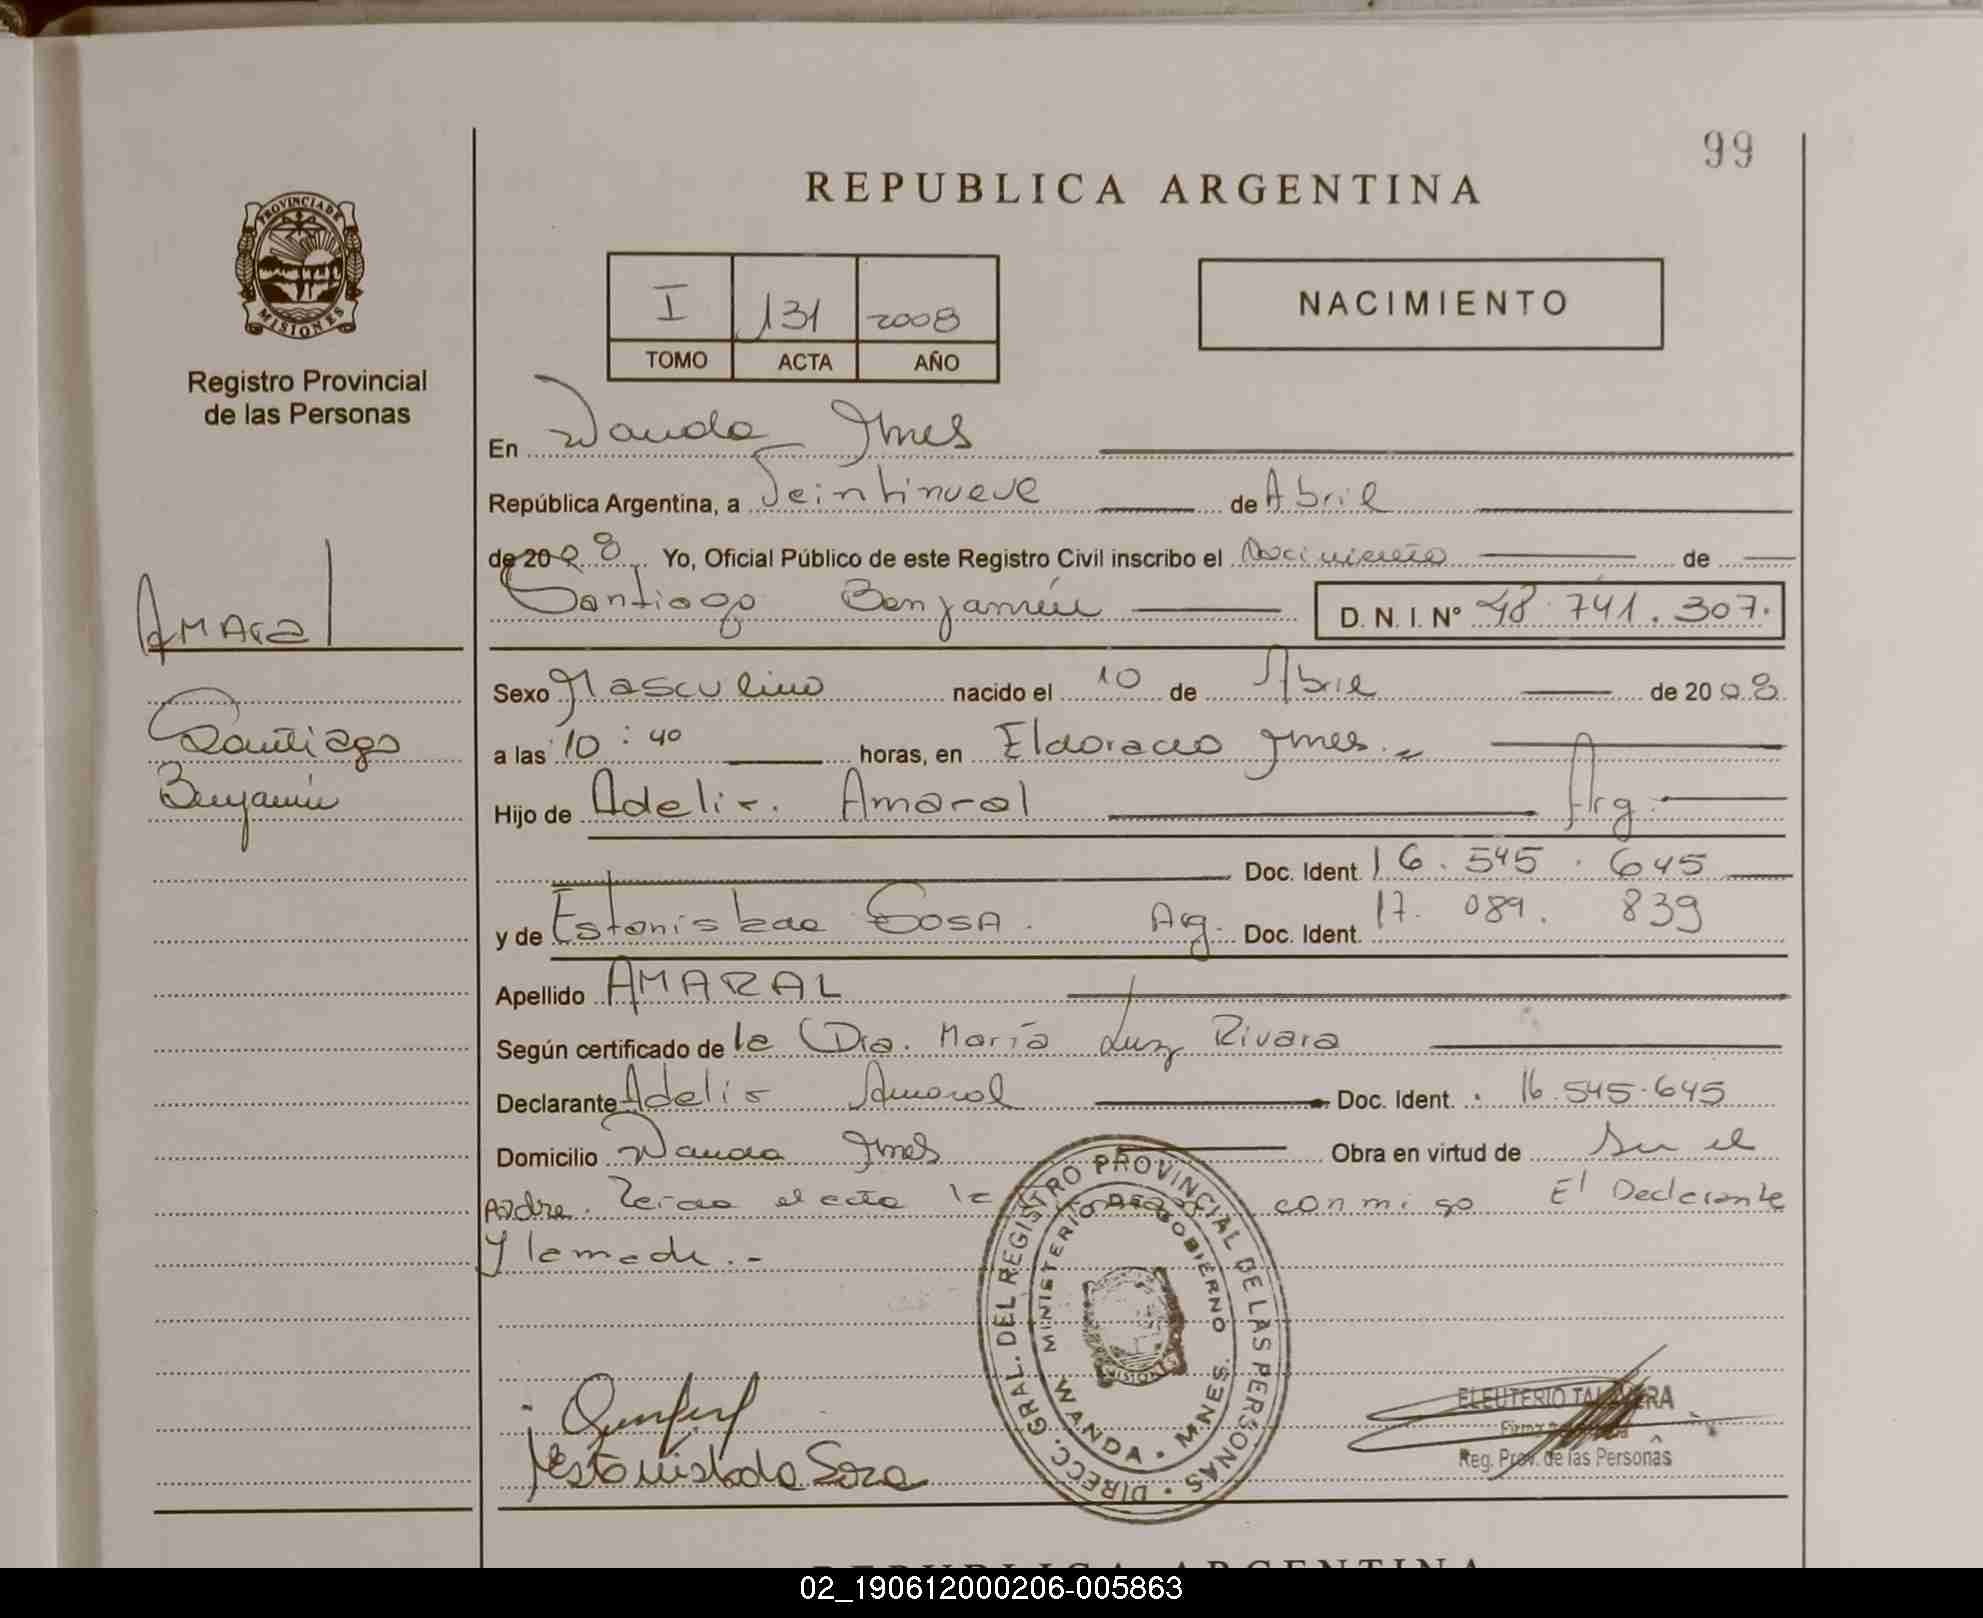 99
REPUBLICA ARGENTINA
PROVINCIA DE
MISIONES
Registro Provincial
de las Personas
I 131 2008
TOMO ACTA AÑO
NACIMIENTO
En Wanda Mnes
República Argentina, a Veintinueve de Abril
de 2008 Yo, Oficial Público de este Registro Civil inscribo el Nacimiento de
Santiago Benjamín D. N. I. N° 48.741.307.
Amaral
Santiago
Benjamín
Sexo Masculino nacido el 10 de Abril de 2008
a las 10:40 horas, en Eldorado Mnes.
Hijo de Adelio Amaral Arg.
Doc. Ident. 16.545.645
y de Estanislada SOSA. Arg. Doc. Ident. 17.089.839
Apellido AMARAL
Según certificado de la Dra. María Luz Rivara
Declarante Adelio Amaral Doc. Ident. 16.545.645
Domicilio Wanda Mnes Obra en virtud de Su el
Padre. Leida el acta la conmigo El Declarante
y la madre.-
DIRECC. GRAL. DEL REGISTRO PROVINCIAL DE LAS PERSONAS
MINISTERIO DE GOBIERNO
MISIONES
WANDA - MNES.
Estanislada Sosa
ELEUTERIO TALAVERA
Reg. Prov. de las Personas
REPUBLICA ARGENTINA
02_190612000206-005863